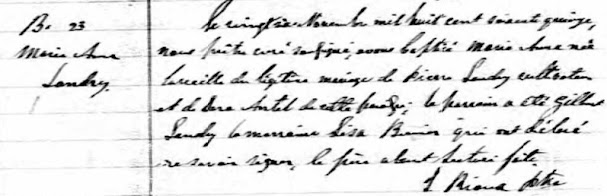 B. 23
Marie Anna
Landry
Le vingt six Novembre mil huit cent soixante quinze,
nous prêtre curé soussigné, avons baptisé Marie Anna née
la veille du légitime mariage de Pierre Landry cultivateur
et de de cette paroisse; le parrain a été Gilbert
Landry la marraine Lisa qui ont déclaré
ne savoir signer, le père absent lecture faite
Ptre